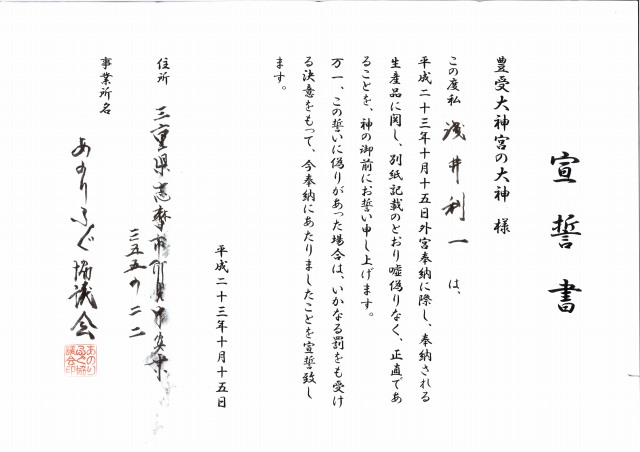 宣誓書
豊受大神宮の大神 様
この度私 浅井利一 は、
平成二十三年十月十五日外宮奉納に際し、奉納される
生産品に関し、別紙記載のとおり嘘偽りなく、正直であ
ることを、神の御前にお誓い申し上げます。
万一、この誓いに偽りがあった場合は、いかなる罰をも受け
る決意をもって、今奉納にあたりましたことを宣誓致し
ます。
平成二十三年十月十五日
住所 三重県志摩市阿児町安乗
三五五の二二
事業所名
あのりふぐ協議会
あのり
ふぐ協
議会印